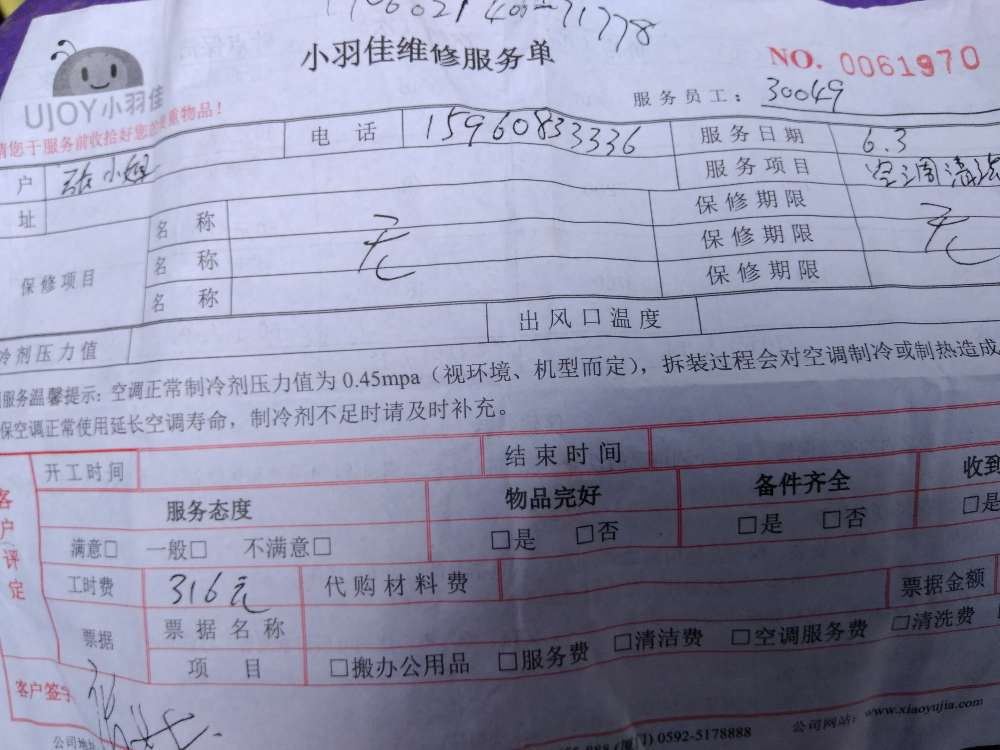 小羽佳维修服务单
NO. 0061970
UJOY小羽佳
服务员工： 30049
请您于服务前收拾好您的贵重物品！
户 张小姐 电 话 15960833336 服务日期 6.3
址 服务项目 空调清洗
保修项目 名 称 无 保修期限 无
名 称 保修期限
名 称 保修期限
冷剂压力值 出风口温度
服务温馨提示：空调正常制冷剂压力值为 0.45mpa（视环境、机型而定），拆装过程会对空调制冷或制热造成
保空调正常使用延长空调寿命，制冷剂不足时请及时补充。
客户评定
开工时间 结束时间
服务态度 物品完好 备件齐全 收到
满意□ 一般□ 不满意□ □是 □否 □是 □否 □是
工时费 316元 代购材料费 票据金额
票据 票据名称
项 目 □搬办公用品 □服务费 □清洁费 □空调服务费 □清洗费
客户签字
公司地址 888 (厦门) 0592-5178888 公司网站：www.xiaoyujia.com